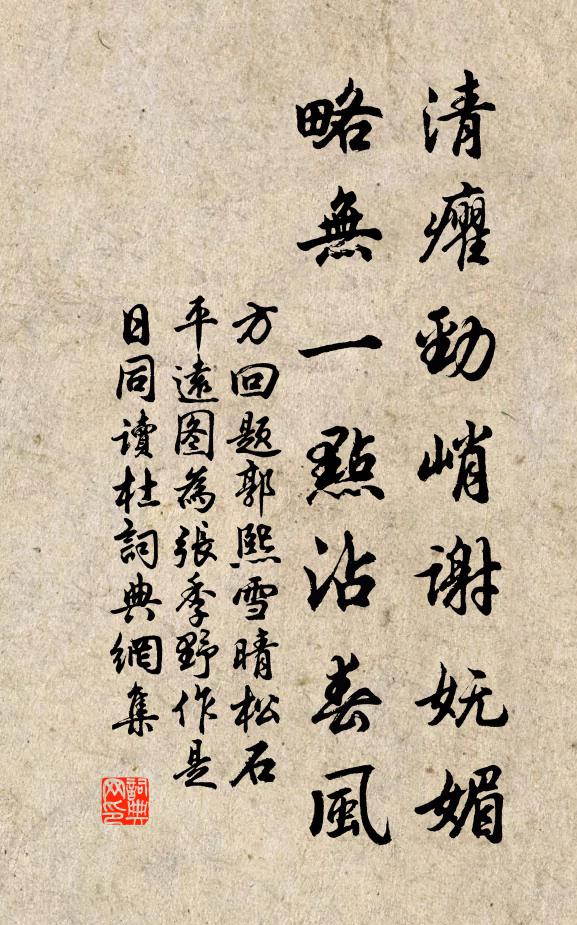 清癯勁峭謝妩媚
略無一點沾春風
方回題郭熙雪晴松石
平遠图為張季野作是
日同讀杜詞典網集
詞典
网印